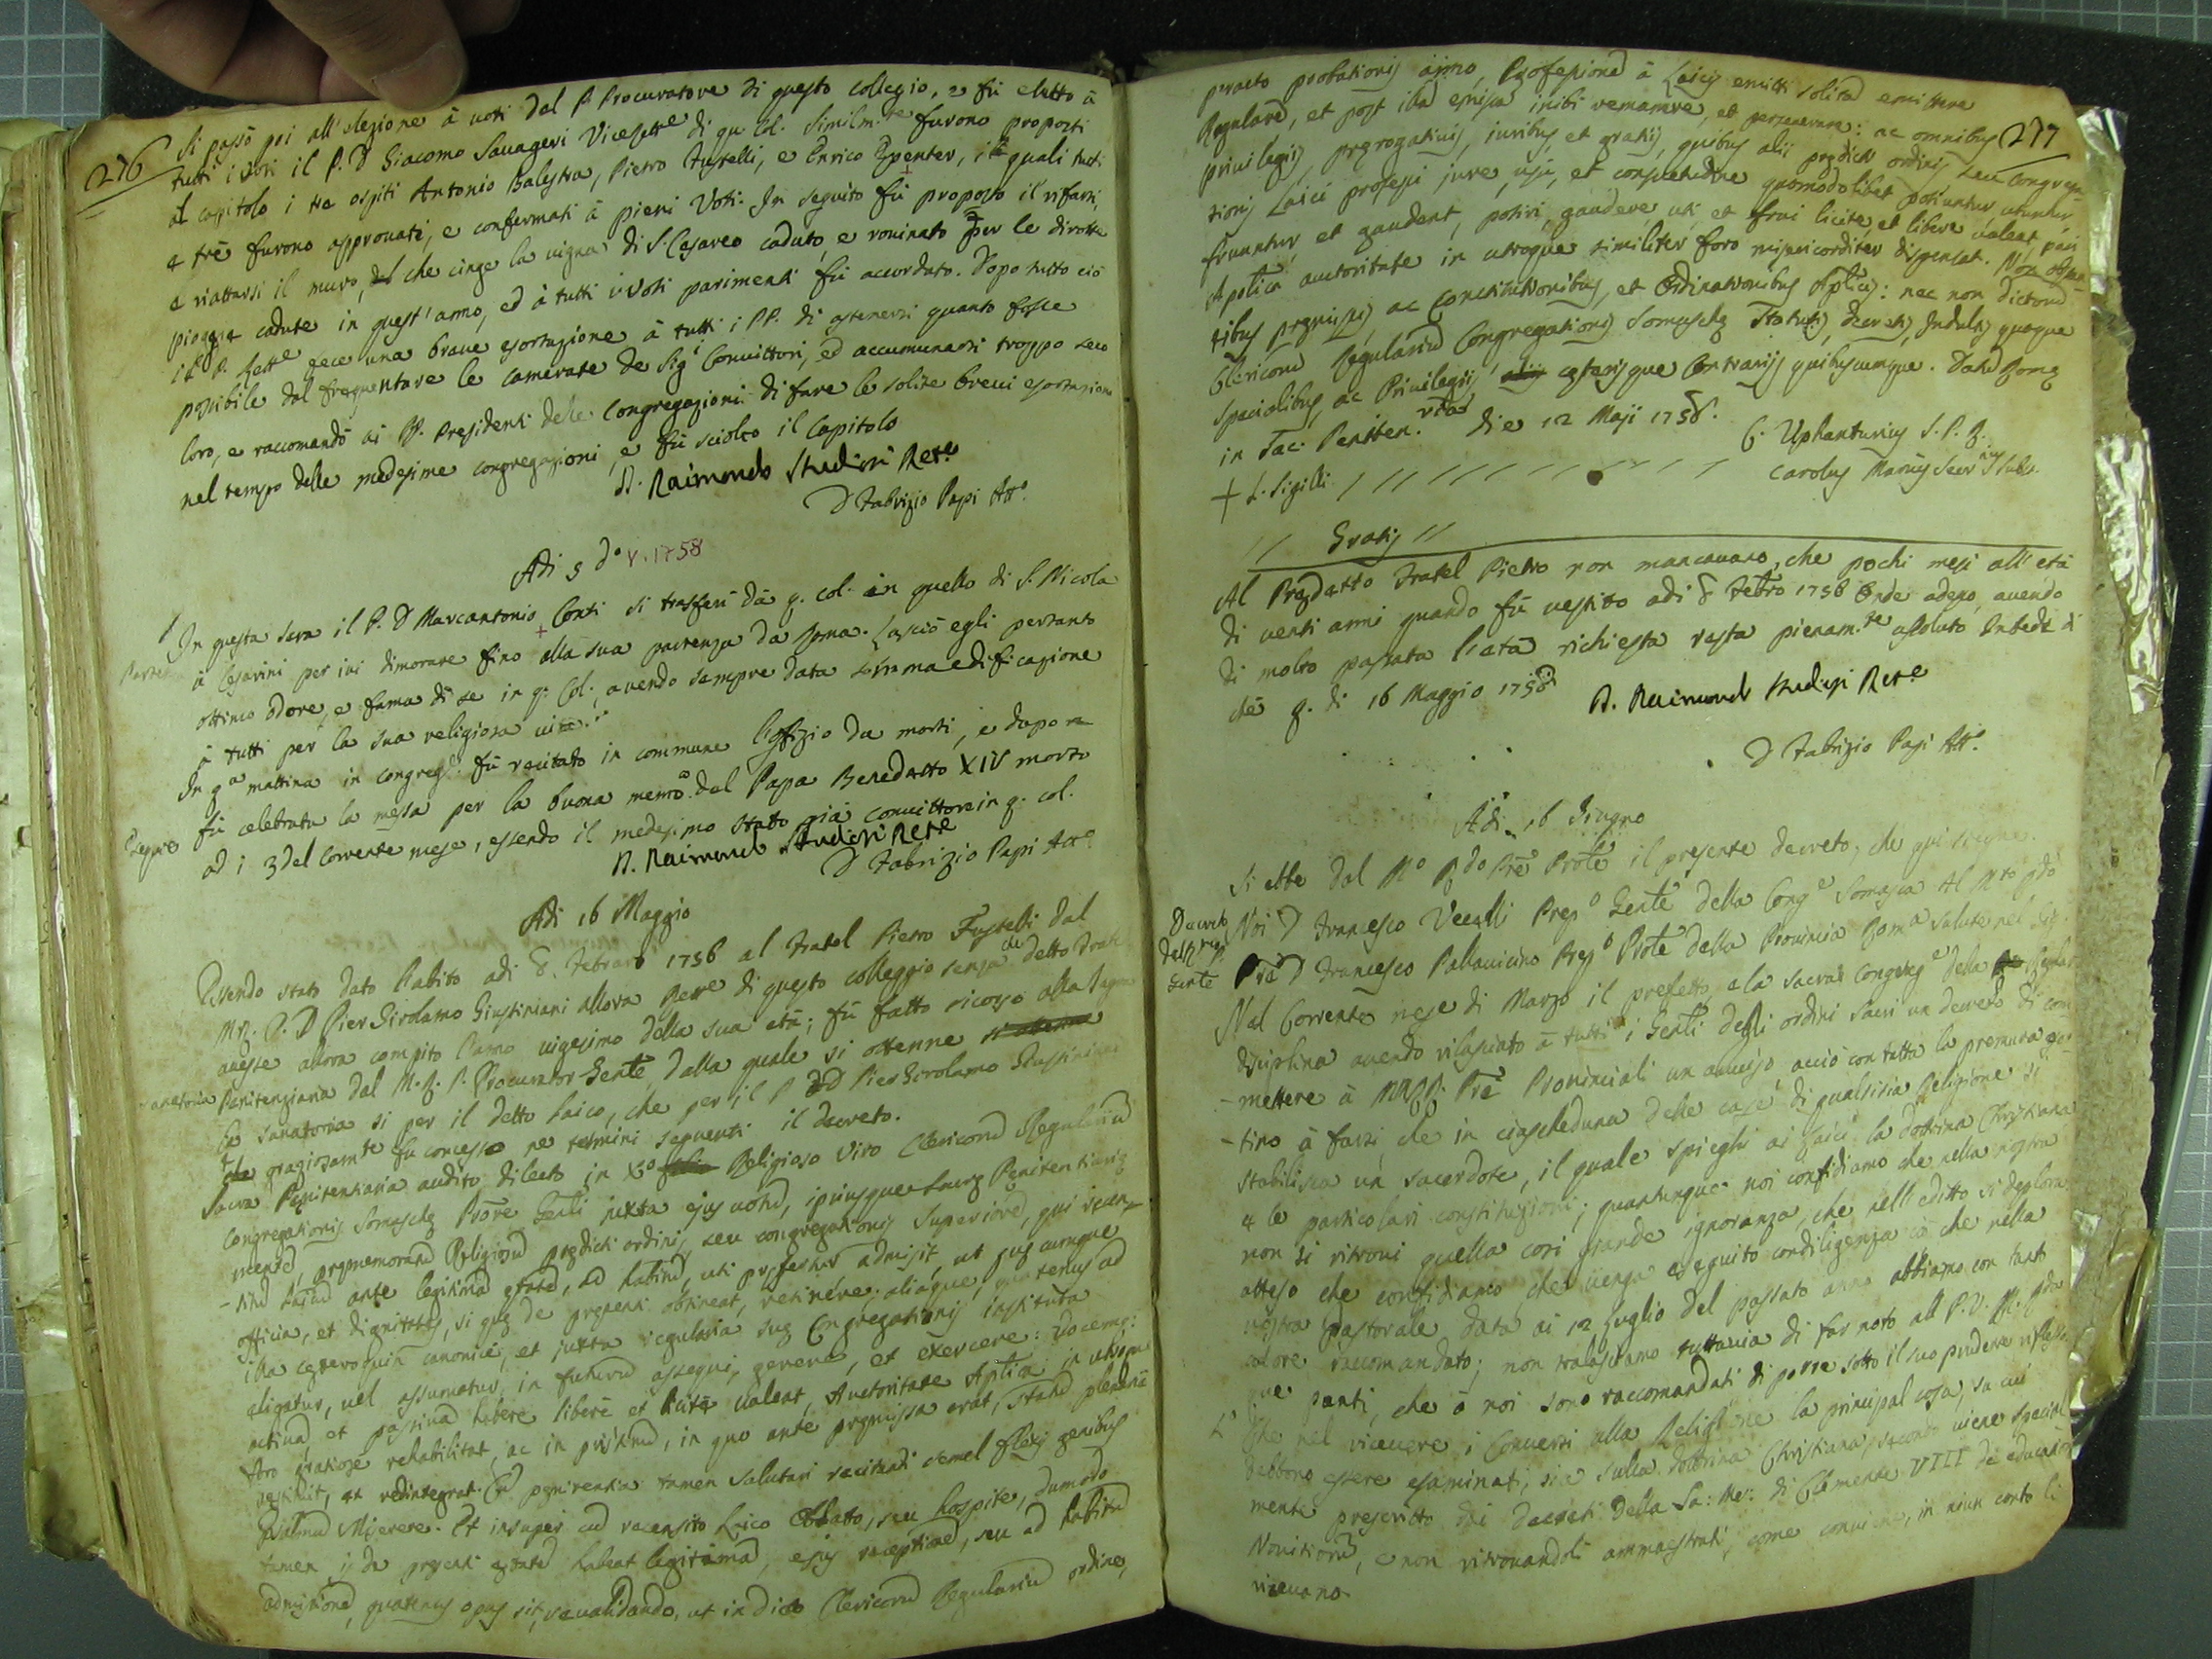 276
Si passò poi all'elezione à voti del P. Procuratore di questo collegio, e fù eletto à
tutti i voti il P. D Giacomo Savageri Vicerettre di qu. Col. Similm.te furono proposti
al capitolo i tre ospiti Antonio Balestra, Pietro Fustelli, e Enrico, i quali tutti
e trè furono approvati, e confermati à pieni Voti. In seguito fù proposto il rifarsi,
e riattarsi il muro, che cinge la vigna di S. Cesareo caduto, e rovinato per le dirotte
piogge cadute in quest'anno, ed à tutti i voti parimenti fù accordato. Dopo tutto ciò
il P. Rettre fece una breve esortazione à tutti i PP. di astenersi quanto fosse
possibile dal frequentare le camerate de Sig.i Convittori, ed accumunarsi troppo seco
loro, e raccomandò ai PP. Presidenti delle Congregazioni di fare le solite brevi esortazioni
nel tempo delle medesime congregazioni, e fù sciolto il Capitolo
D. Raimondo Studiosi Rett.e
D Fabrizio Papi Att.o
Adi 5 do V. 1758
In questa sera il P. D Marcantonio Conti si trasferì da q. col. in quello di S. Nicola
Parte
à Cesarini per ivi dimorare fino alla sua partenza da Roma. Lasciò egli pertanto
ottimo odore, e fama di se in q. Col., avendo sempre data somma edificazione
à tutti per la sua religiosa vita.
In q.a mattina in congreg.e fù recitato in commune l'offizio de morti, e dopo ne
fù celebrata la messa per la buona memo. del Papa Benedetto XIV morto
ad i 3 del corrente mese, essendo il medesimo stato già convittore in q. col.
D. Raimondo Studiosi Rett.e
D Fabrizio Papi Att.o
Adi 16 Maggio
Essendo stato dato l'abito adi 8. Febraro 1756 al Fratel Pietro Fustelli dal
M.R. P. D Pier Girolamo Giustiniani allora Rettre di questo colleggio senza che detto Fratel
avesse allora compito l'anno vigesimo della sua età; fù fatto ricorso alla Sagra
Penitenziaria dal M. R. P. Procurator Genle, dalla quale si ottenne
la sanatoria si per il detto laico, che per il P D Pier Girolamo Giustiniani
che graziosamte fu concesso ne termini seguenti il decreto.
Sacra Penitentiaria audito dilecto in Xo Religioso Viro Clericorum Regularium
Congregationis Somaschę Prore Genli juxta ejus votum, ipsiusque Sacrę Penitentiarię
mentem, pręmemoratum Religiosum prędicti ordinis, seu congregationis Superiorem, qui recen-
situm laicum ante legitimam ętatem, ad habitum, uti prefertur admisit, ut quęcumque
officia, et dignitates, si quę de pręsenti obtineat, retinere; aliaque, quatenus ad
illa cęteroquin canonicè, et juxta regularia suę Congregationis instituta
eligatur, vel assumatur, in futurum assequi, gerere, et exercere: vocemq:
activam, et passivam habere liberè et licitè valeat, Auctoritate Aplica in utroque
foro gratiosè rehabilitat, ac in pristinum, in quo ante pręmissa erat, statum plenariè
restituit, et redintegrat. Cum pęnitentia tamen salutari recitandi semel flexis genibus
Psalmum Miserere. Et insuper cum recensito Laico Oblato, seu hospite, dummodo
tamen is de pręsenti ętatem habeat legitimam, ejus receptionem, seu ad habitum
admissionem, quatenus opus sit, revalidando, ut in dicto Clericorum Regularium ordine,
277
peracto probationis anno, Professionem à Laicis emitti solitam emittere
Regularem, et post illam emissam inibi remanere, et perseverare: ac omnibus
privilegijs, pręrogativis, juribus, et gratijs, quibus alij prędicti ordinis, seu congrega-
tionis Laici professi jure, usu, et consuetudine quomodolibet potiuntur, utuntur,
fruuntur, et gaudent, potiri, gaudere, uti, et frui licitè, et liberè valeat, pari
Apostolica auctoritate in utroque similiter foro misericorditer dispensat. Non obstan-
tibus pręmissis, ac Constitutionibus, et Ordinationibus Aplicis: nec non dictorum
Clericorum Regularium Congregationis Somaschę Statutis, decretis, Indultis quoque
specialibus, ac Privilegijs, cęterisque Contrarijs quibuscumque. Datum Romę
in Sac. Peniten.ria die 12 Maji 1758.
C. Uphanturius S. P. R.
+ L. Sigilli
Carolus Marius Secr.rius Subs.
// Gratis //
Al Predetto Fratel Pietro non mancavano, che pochi mesi all'età
di venti anni quando fù vestito adi 8 Febro 1756 Onde adesso, avendo
di molto passata l'età richiesta resta pienam.te assoluto. In fede di
che q. di 16 Maggio 1758
D. Raimondo Studiosi Rett.e
D Fabrizio Papi Att.o
Adi 16 Giugno
Si ebbe dal M.o R.do Pre Prole il presente decreto, che qui segue
Decreto
del Rmo P.
Genle
Noi D Francesco Vecelli Prep.o Genle della Cong.e Somasca Al M.to Rdo
Pre D Francesco Pallavicino Prep.o Prole della Provincia Rom.a salute nel Sig.
Nel Corrente mese di Marzo il prefetto, e la sacra Congreg.e della Regolar
disciplina avendo rilasciato à tutti i Genli degli ordini Sacri un decreto di com-
mettere à MRR. Pri Provinciali un avviso, acciò con tutta la premura
tino à farsi, che in ciascheduna delle case di qualsisia Religione si
stabilisca un sacerdote, il quale spieghi ai Laici la dottrina Christiana
e le particolari constituzioni; quantunque noi confidiamo che nella nostra
non si ritrovi quella così grande ignoranza, che nell'editto si deplora
atteso che confidiamo, che venga eseguito con diligenza ciò che nella
nostra Pastorale data ai 12 Luglio del passato anno abbiamo con tant
calore raccomandato; non tralasciamo tuttavia di far noto alla P. V. M. Rda
que punti, che à noi sono raccomandati di porre sotto il suo prudente riflesso
Che nel ricevere i Conversi alla Religione la principal cosa, su cui
debbono essere esaminati, sia sulla dottrina Christiana, secondo viene special
mente prescritto dai decreti della Sa: Me: di Clemente VIII de educatione
Novitiorum, e non ritrovandoli ammaestrati, come conviene, in niun conto li
ricevano.